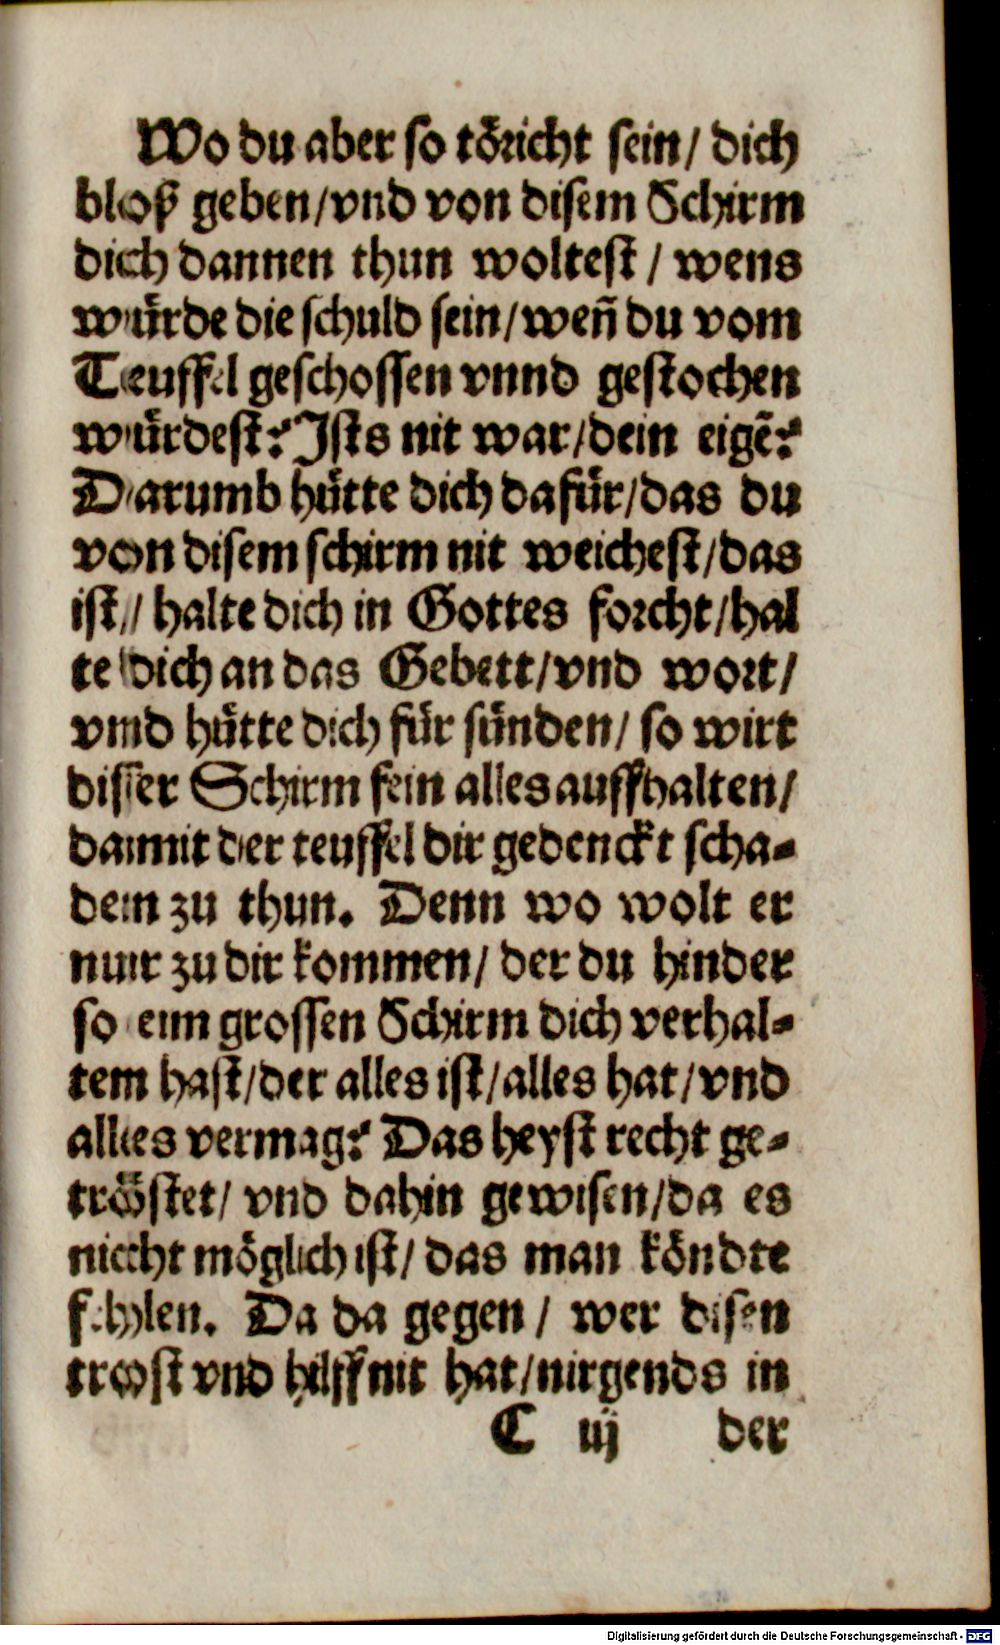 Wo du aber so töricht sein/ dich
bloß geben/vnd von disem Schirm
dich dannen thun woltest / wens
würde die schuld sein/weñ du vom
Teuffel geschossen vnnd gestochen
würdest? Ists nit war/dein eigẽ?
Darumb hütte dich dafür/das du
von disem schirm nit weichest/das
ist/ halte dich in Gottes forcht/hal
te dich an das Gebett/vnd wort/
vnd hütte dich für sünden/ so wirt
disser Schirm fein alles auffhalten/
damit der teuffel dir gedenckt scha-
den zu thun. Denn wo wolt er
nur zu dir kommen/ der du hinder
so ein grossen Schirm dich verhal-
ten hast/der alles ist/alles hat/vnd
alles vermag? Das heyst recht ge-
tröstet/ vnd dahin gewisen/da es
nicht möglich ist/ das man köndte
fehlen. Da da gegen / wer disen
trost vnd hilff nit hat/nirgends in
C iij der
Digitalisierung gefördert durch die Deutsche Forschungsgemeinschaft - DFG